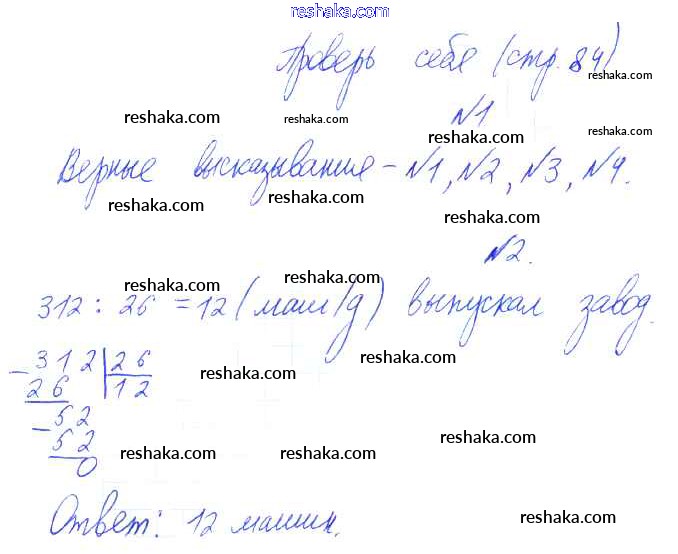 reshaka.com
Проверь себя (стр. 84)
reshaka.com
reshaka.com reshaka.com
№1
reshaka.com reshaka.com
Верные высказывания - №1, №2, №3, №4.
reshaka.com reshaka.com
№2.
reshaka.com reshaka.com
312 : 26 = 12 (маш/д) выпускал завод.
- 312 | 26
26 | 12
reshaka.com reshaka.com reshaka.com
- 52
52
0
reshaka.com reshaka.com reshaka.com
Ответ: 12 машин.
reshaka.com